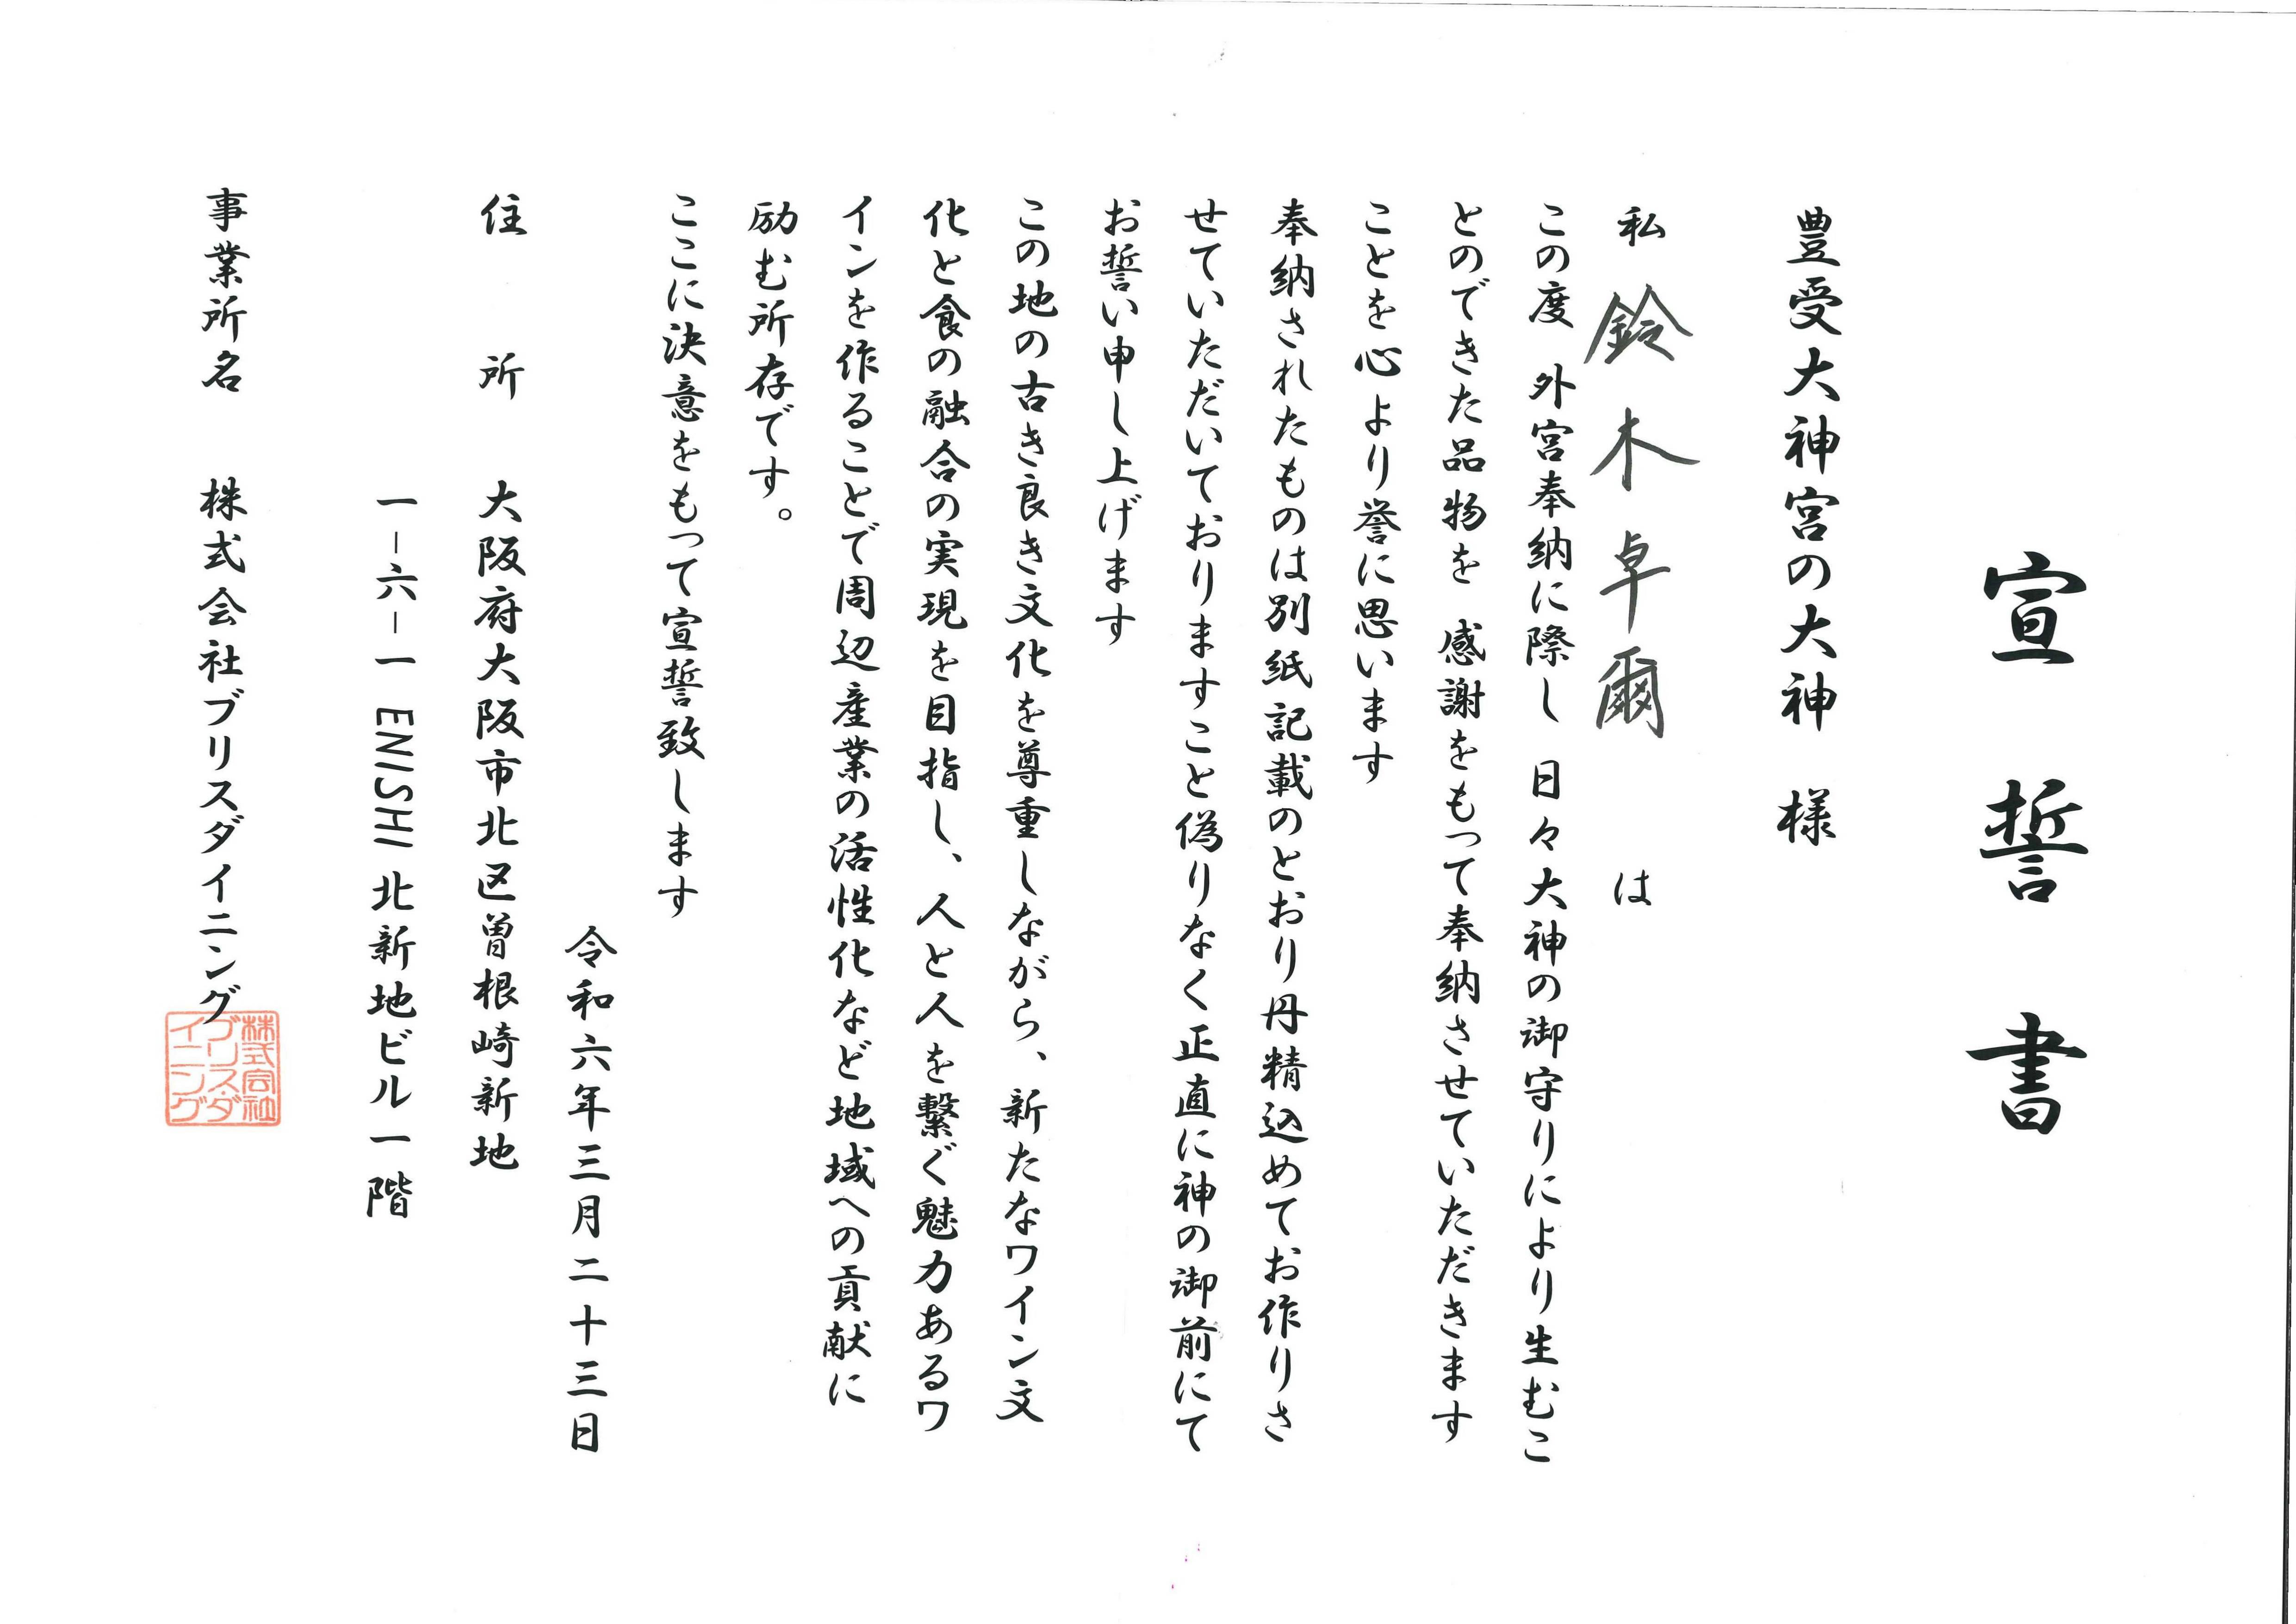 宣誓書
豊受大神宮の大神　様
私　鈴木卓爾　は
この度　外宮奉納に際し　日々大神の御守りにより生むこ
とのできた品物を　感謝をもって奉納させていただきます
ことを心より誉に思います
奉納されたものは別紙記載のとおり丹精込めてお作りさ
せていただいておりますこと偽りなく正直に神の御前にて
お誓い申し上げます
この地の古き良き文化を尊重しながら、新たなワイン文
化と食の融合の実現を目指し、人と人を繋ぐ魅力あるワ
インを作ることで周辺産業の活性化など地域への貢献に
励む所存です。
ここに決意をもって宣誓致します
令和六年三月二十三日
住　所　大阪府大阪市北区曽根崎新地
一-六-一 ENISHI 北新地ビル一階
事業所名　株式会社ブリスダイニング
株式会社
ブリスダ
イニング